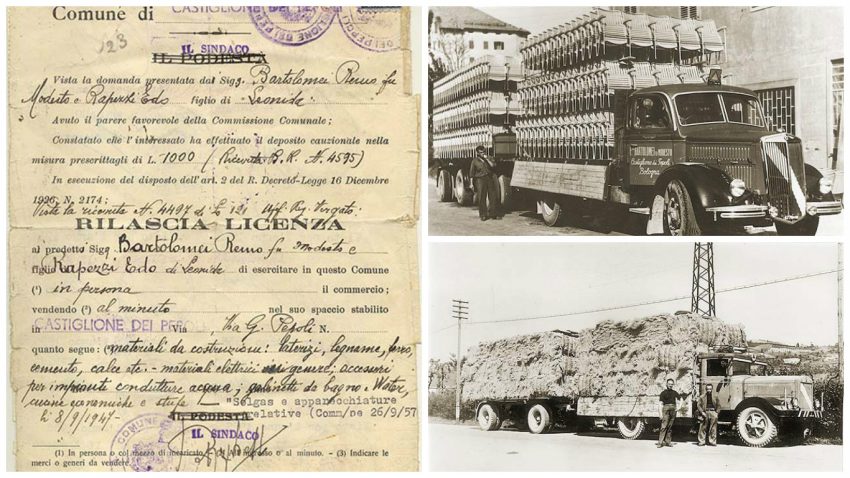 Comune di CASTIGLIONE DEI PEPOLI
123
IL SINDACO
IL PODESTÀ
Vista la domanda presentata dal Sigg. Bartolomei Remo fu
Modesto e Raperzi Edo figlio di Leonida.
Avuto il parere favorevole della Commissione Comunale;
Constatato che l'interessato ha effettuato il deposito cauzionale nella
misura prescrittagli di L. 1000 (Ricevuta B.R. N. 4595)
In esecuzione del disposto dell'art. 2 del R. Decreto-Legge 16 Dicembre
1926, N. 2174;
Vista la ricevuta N. 4497 di L. 121 Uff. Rg. Vergato;
RILASCIA LICENZA
al predetto Sigg. Bartolomei Remo fu Modesto e
figlio Raperzi Edo di Leonida di esercitare in questo Comune
(¹) in persona il commercio;
vendendo (²) al minuto nel suo spaccio stabilito
in CASTIGLIONE DEI PEPOLI Via Via G. Pepoli N.
quanto segue: (³) materiali da costruzione: laterizi, legname, ferro,
cemento, calce etc. - materiali elettrici in genere; accessori
per impianti condutture acqua; gabinetti da bagno. Water,
cucine economiche e stufe "Selgas e apparecchiature
relative (Comm/ne 26/9/57
28/9/1947-
IL PODESTÀ
IL SINDACO
(1) In persona o col mezzo di incaricato. - (2) All'ingrosso o al minuto. - (3) Indicare le
merci o generi da vendere.
BARTOLOMEI FU MODESTO
Castiglione dei Pepoli
Bologna